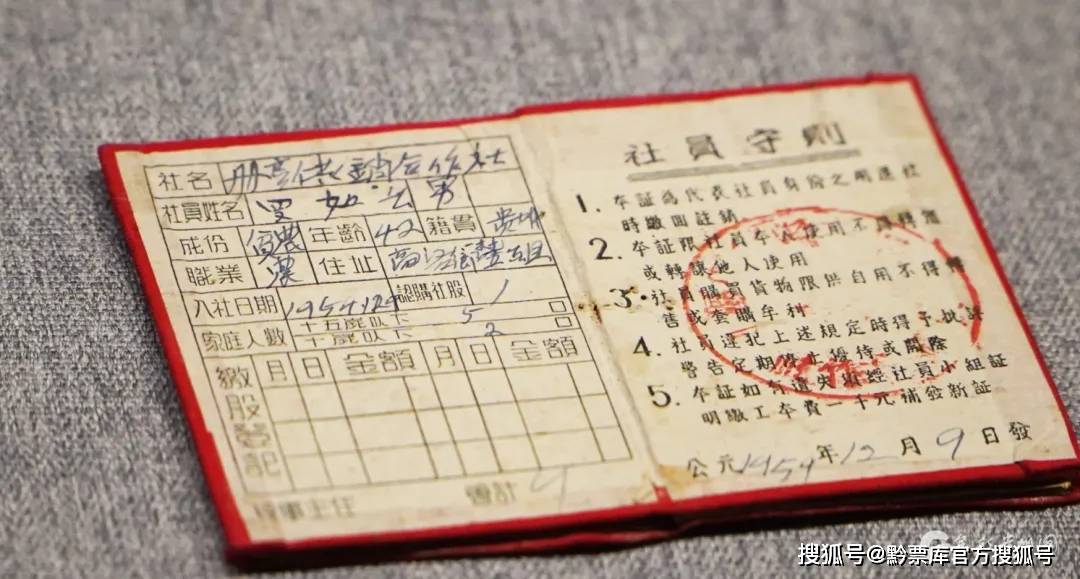 社名 册亨供銷合作社
社員姓名 如 男
成份 貧農 年齡 42 籍貫
職業 農 住址
入社日期 1954.12.9 認購社股 1
家庭人數 十五歲以上 5 口
十歲以下 2 口
繳股登記 月 日 金額 月 日 金額
理事主任 會計
社員守則
1. 本証為代表社員身份之明退社
時繳回註銷
2. 本証限社員本人使用不得轉
或轉讓他人使用
3. 社員購買貨物限供自用不得
售或套購牟利
4. 社員違犯上述規定時得予批評
警告定期停止優待或開除
5. 本証如有遺失須經社員小組証
明繳工本費一千元補發新証
公元1954年12月9日發
搜狐号@黔票库官方搜狐号